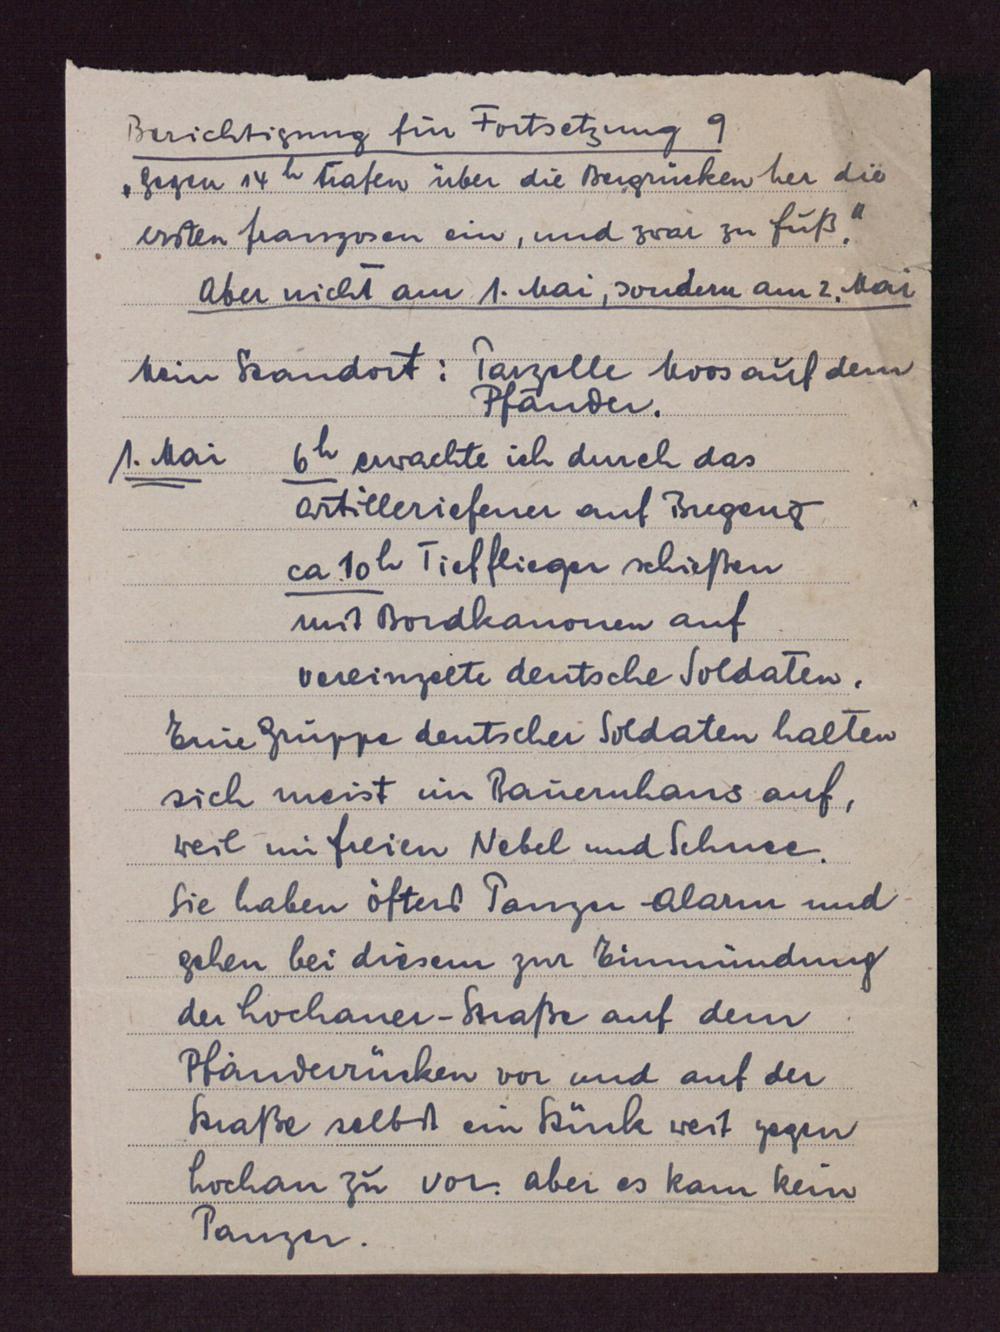 Berichtigung für Fortsetzung 9
"gegen 14 h trafen über die Bergrücken her die
ersten franzosen ein, und zwar zu fuß."
Aber nicht am 1. Mai, sondern am 2. Mai
Mein Standort: Parzelle Moos auf dem
Pfänder.
1. Mai 6h erwachte ich durch das
Artilleriefeuer auf Bregenz
ca 10h Tiefflieger schießen
mit Bordkanonen auf
vereinzelte deutsche Soldaten.
Eine Gruppe deutscher Soldaten halten
sich meist im Bauernhaus auf,
weil im freien Nebel und Schnee.
Sie haben öfters Panzer-Alarm und
gehen bei diesem zur Einmündung
der Lochauer-Straße auf dem
Pfänderrücken vor und auf der
Straße selbst ein Stück weit gegen
Lochau zu vor. aber es kam kein
Panzer.